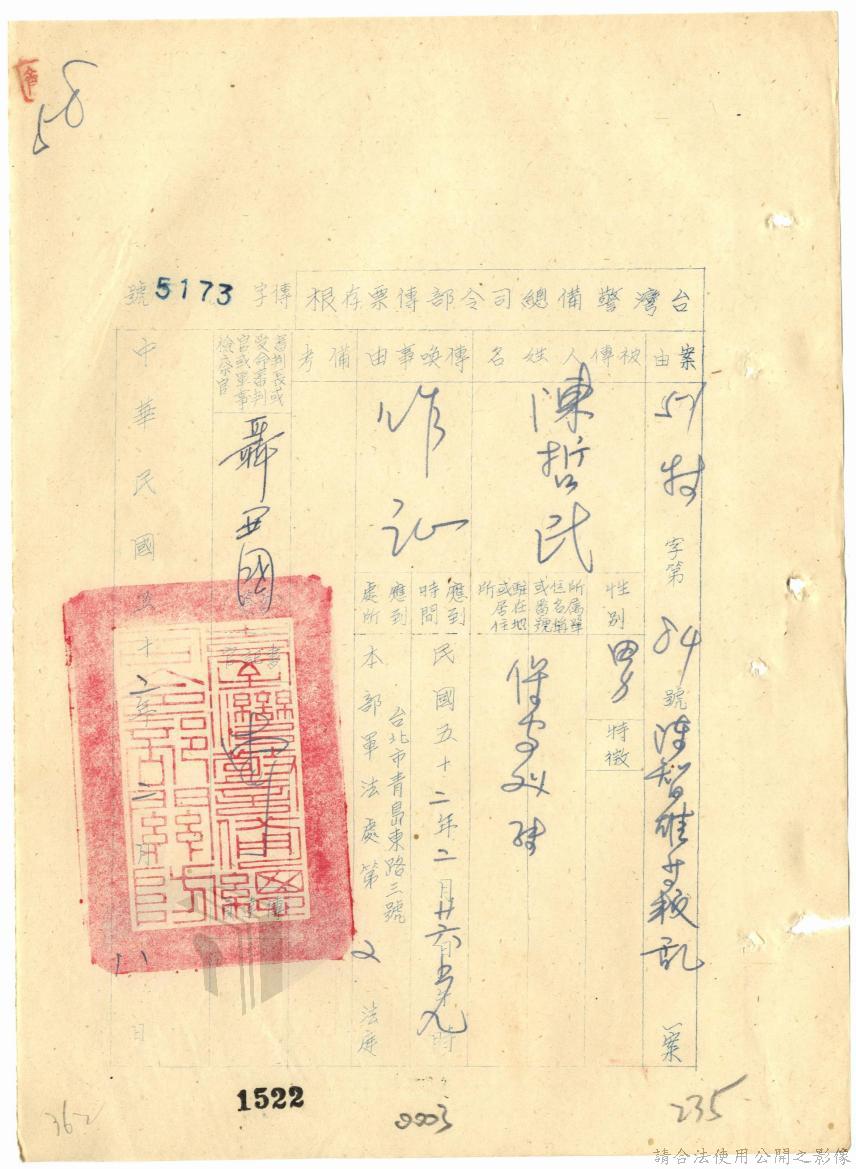 58
台灣警備總司令部傳票存根
傳字 5173 號
案由
51 特 字第 84 號 陳智雄等叛乱 案
被傳人姓名
陳哲民
性別
男
特徵
所屬單位名稱或番號駐在地或居住所
傳喚事由
作証
應到時間
民國五十二年二月廿六日 九時
應到處所
台北市青島東路三號
本部軍法處第 2 法庭
備考
審判長或受命審判官或軍事檢察官
聶开國
中華民國五十二年二月 八 日
1522
0003
235
362
請合法使用公開之影像